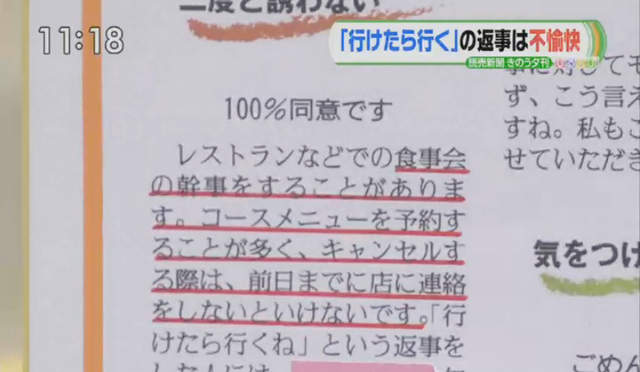 11:18
「行けたら行く」の返事は不愉快
読売新聞 きのう夕刊
二度と誘わない
100%同意です
レストランなどでの食事会
の幹事をすることがありま
す。コースメニューを予約す
ることが多く、キャンセルす
る際は、前日までに店に連絡
をしないといけないです。「行
けたら行くね」という返事を
した人には、
ず、こう言え
すね。私もこ
せていただき
気をつけ
ごめん